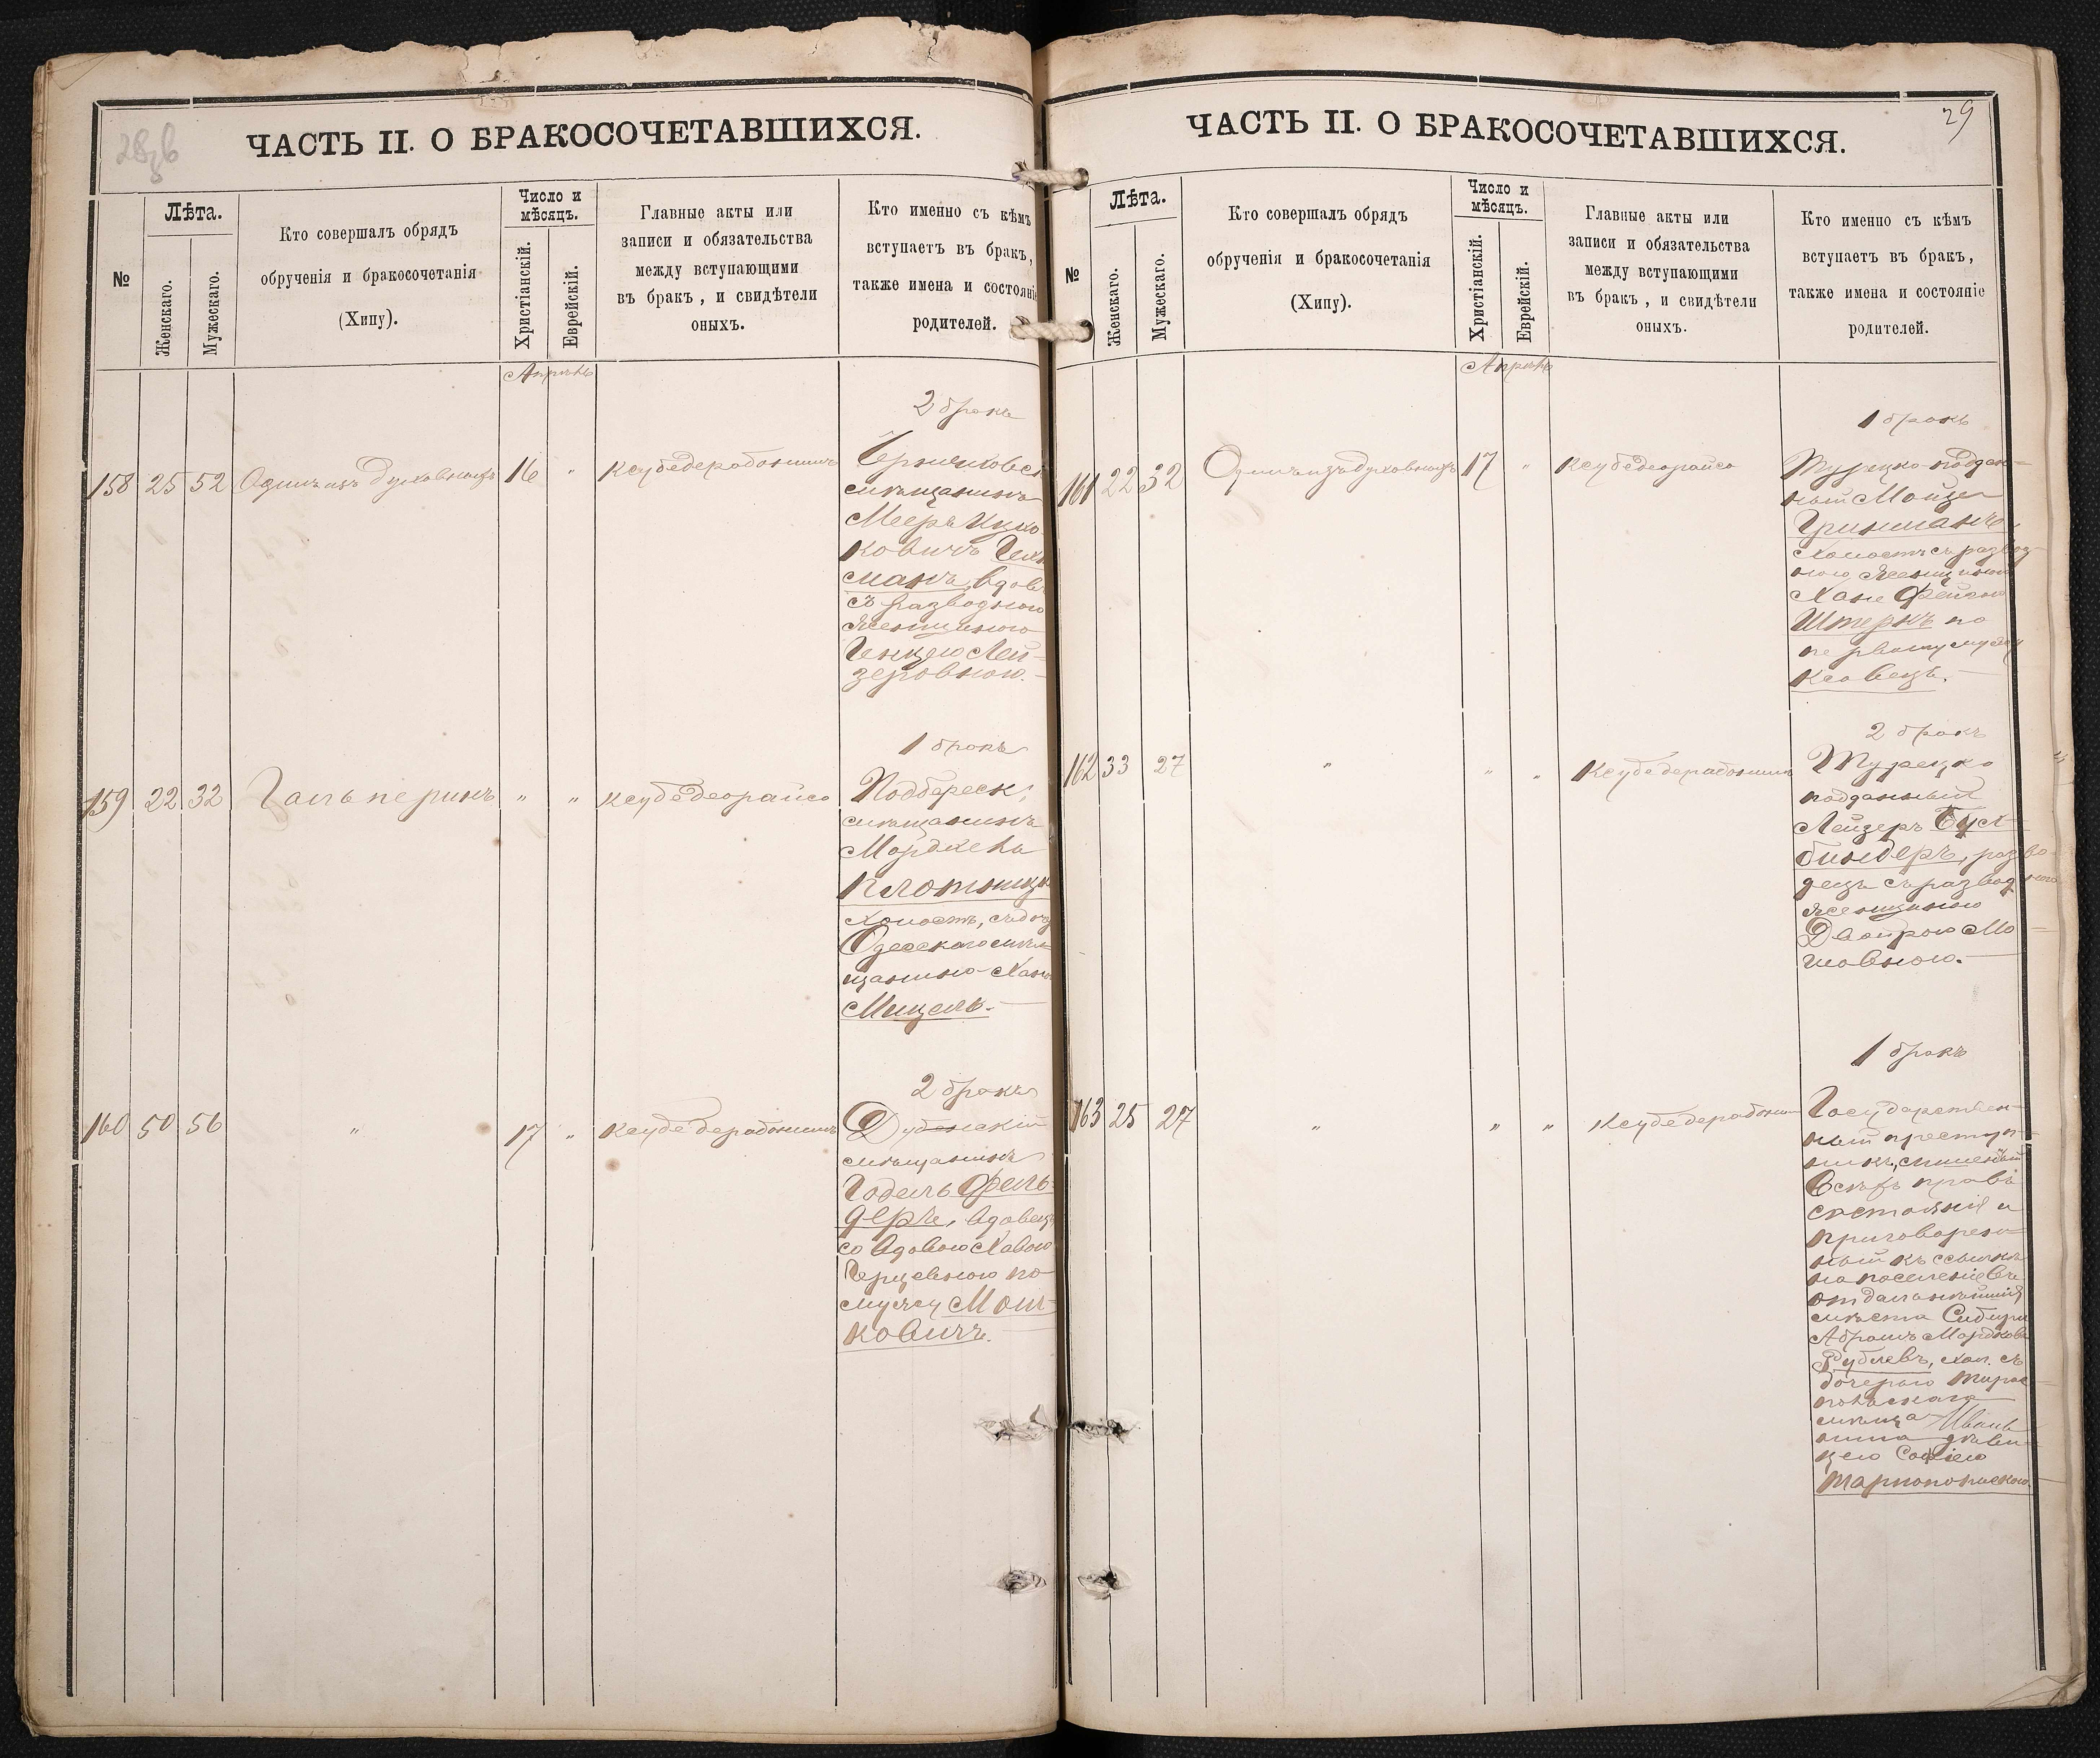 28об
ЧАСТЬ II. О БРАКОСОЧЕТАВШИХСЯ.
№
Лѣта.
Женскаго.
Мужескаго.
Кто совершалъ обрядъ
обрученія и бракосочетанія
(Хипу).
Число и
мѣсяцъ.
Христіанскій.
Еврейскій.
Главные акты или
записи и обязательства
между вступающими
въ бракъ, и свидѣтели
оныхъ.
Кто именно съ кѣмъ
вступаетъ въ бракъ,
также имена и состояніе
родителей.
Апрѣль
2 бракъ
158 25 52 Одинъ изъ духовныхъ 16 " Ксубедерабонимъ
мѣщанинъ
Мееръ Ицко
ковичъ
манъ, вдов
съ разводною
женщиною
Генцею Лей-
зеровною.
1 бракъ
159 22 32 Гальперинъ " " Ксубедеорайсо Подбереск:
мѣщанинъ
Мордхель
Плотницк
холостъ, съ доч
Одесскаго мѣ
щанина Ханою
Мицель.
2 бракъ
160 50 56 " 17 " Ксубедерабонимъ Дубенскій
мѣщанинъ
Годель Фель-
деръ, вдовецъ
со вдовою Хавою
Герцевною по
мужу Мош-
ковичъ.
29
ЧАСТЬ II. О БРАКОСОЧЕТАВШИХСЯ.
№
Лѣта.
Женскаго.
Мужескаго.
Кто совершалъ обрядъ
обрученія и бракосочетанія
(Хипу).
Число и
мѣсяцъ.
Христіанскій.
Еврейскій.
Главные акты или
записи и обязательства
между вступающими
въ бракъ, и свидѣтели
оныхъ.
Кто именно съ кѣмъ
вступаетъ въ бракъ,
также имена и состояніе
родителей.
Апрѣль
1 бракъ
161 22 32 Одинъ изъ духовныхъ 17 " Ксубедеорайсо Турецко-поддан-
ный Мойзе
Гринманъ,
холостъ съ развод-
ною женщиною
Хане Фейгою
Штеркъ по
первому мужу
2 бракъ
162 33 27 " " " Ксубедерабонимъ Турецко
подданный
Лейзеръ Бух-
биндеръ, разво-
децъ съ разводною
женщиною
Двойрою Мо-
шовною.
1 бракъ
163 25 27 " " " Ксубедерабоним Государствен-
ный преступ-
никъ, лишенный
всѣхъ правъ
состоянія и
приговорен-
ный къ ссылкѣ
на поселеніе въ
отдаленнѣйшія
мѣста Сибири
Абрамъ Мордков
Рублевъ, хол. съ
дочерью Тирас-
польскаго
мѣща
дѣви-
цею Софіею
Тарнопольскою.